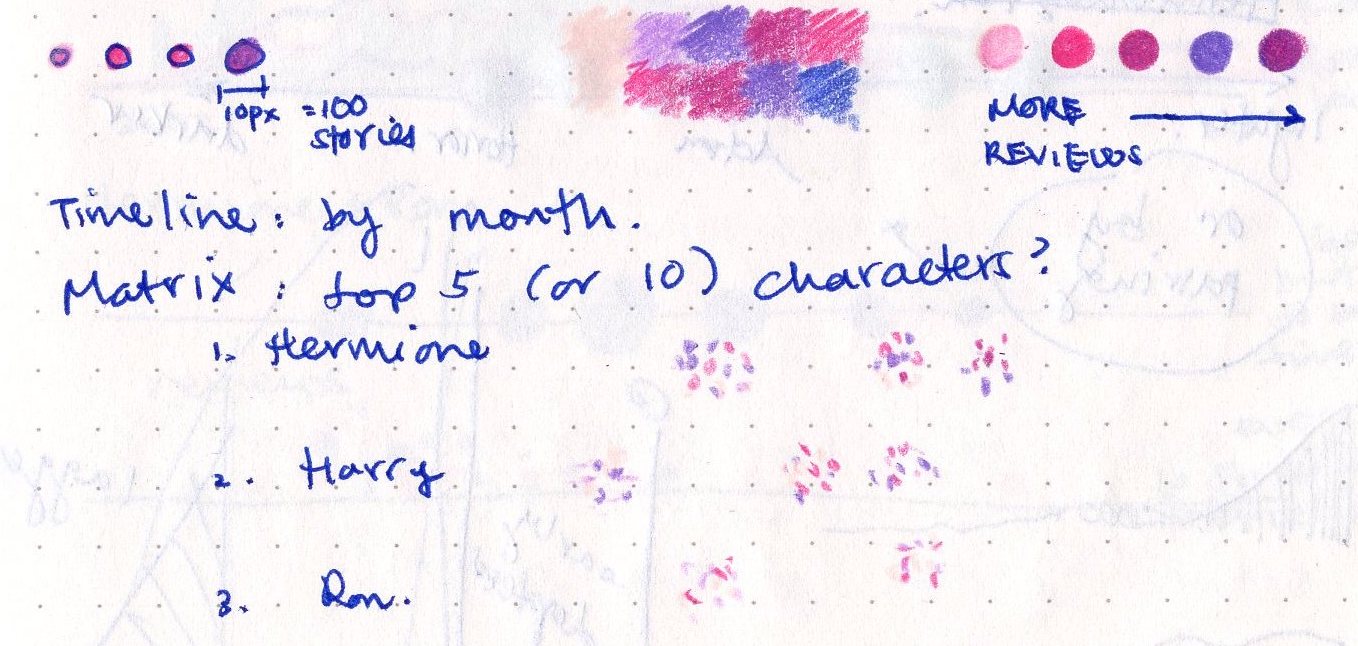 10px = 100 stories
MORE REVIEWS
Timeline: by month.
Matrix: top 5 (or 10) characters?
1. Hermione
2. Harry
3. Ron.